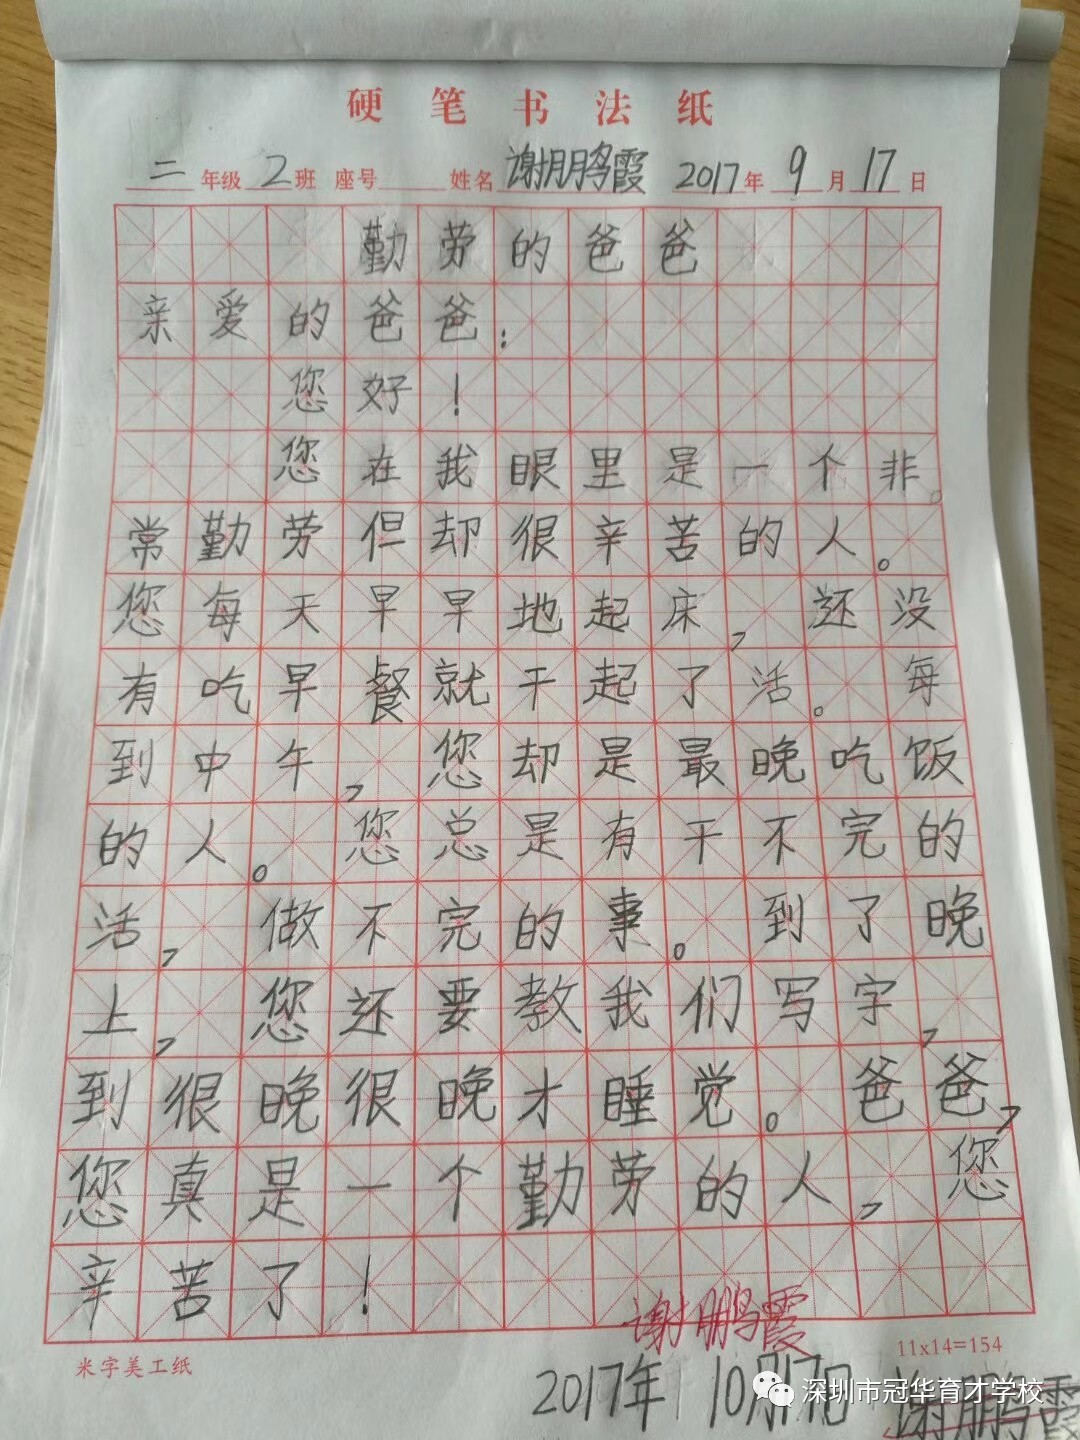 硬笔书法纸
二年级2班 座号 姓名谢鹏霞 2017年9月17日
勤劳的爸爸
亲爱的爸爸：
您好！
您在我眼里是一个非。
常勤劳但却很辛苦的人。
您每天早早地起床，还没
有吃早餐就干起了活。每
到中午，您却是最晚吃饭
的人。您总是有干不完的
活，做不完的事。到了晚
上，您还要教我们写字，
到很晚很晚才睡觉。爸爸，
您真是一个勤劳的人，您
辛苦了！
谢鹏霞
米字美工纸 11x14=154
2017年10月17日 谢鹏霞
深圳市冠华育才学校